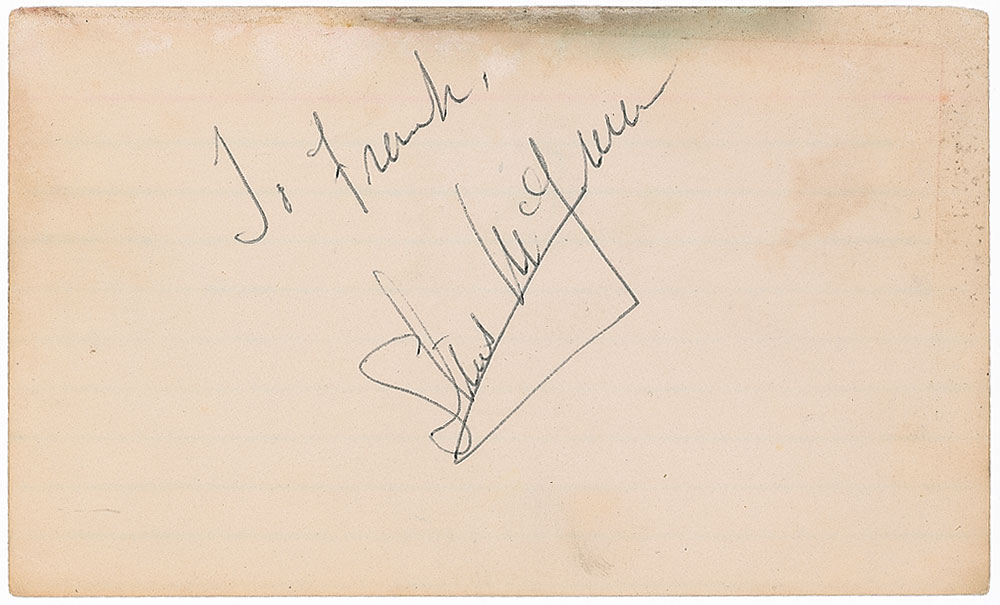 To Frank,
Steve McQueen